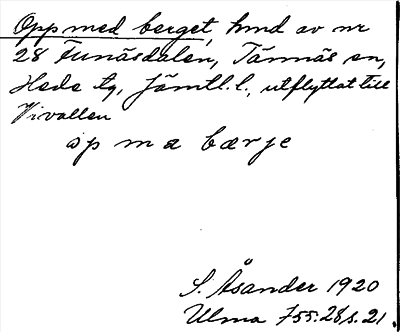 Opp med berget, hmd av nr
28 Funäsdalen, Tännäs sn,
Hede tg, Jämtl. l., utflyttat till
Vivallen
op m a bærje
S. Åsander 1920
Ulma 755:28 s. 21.